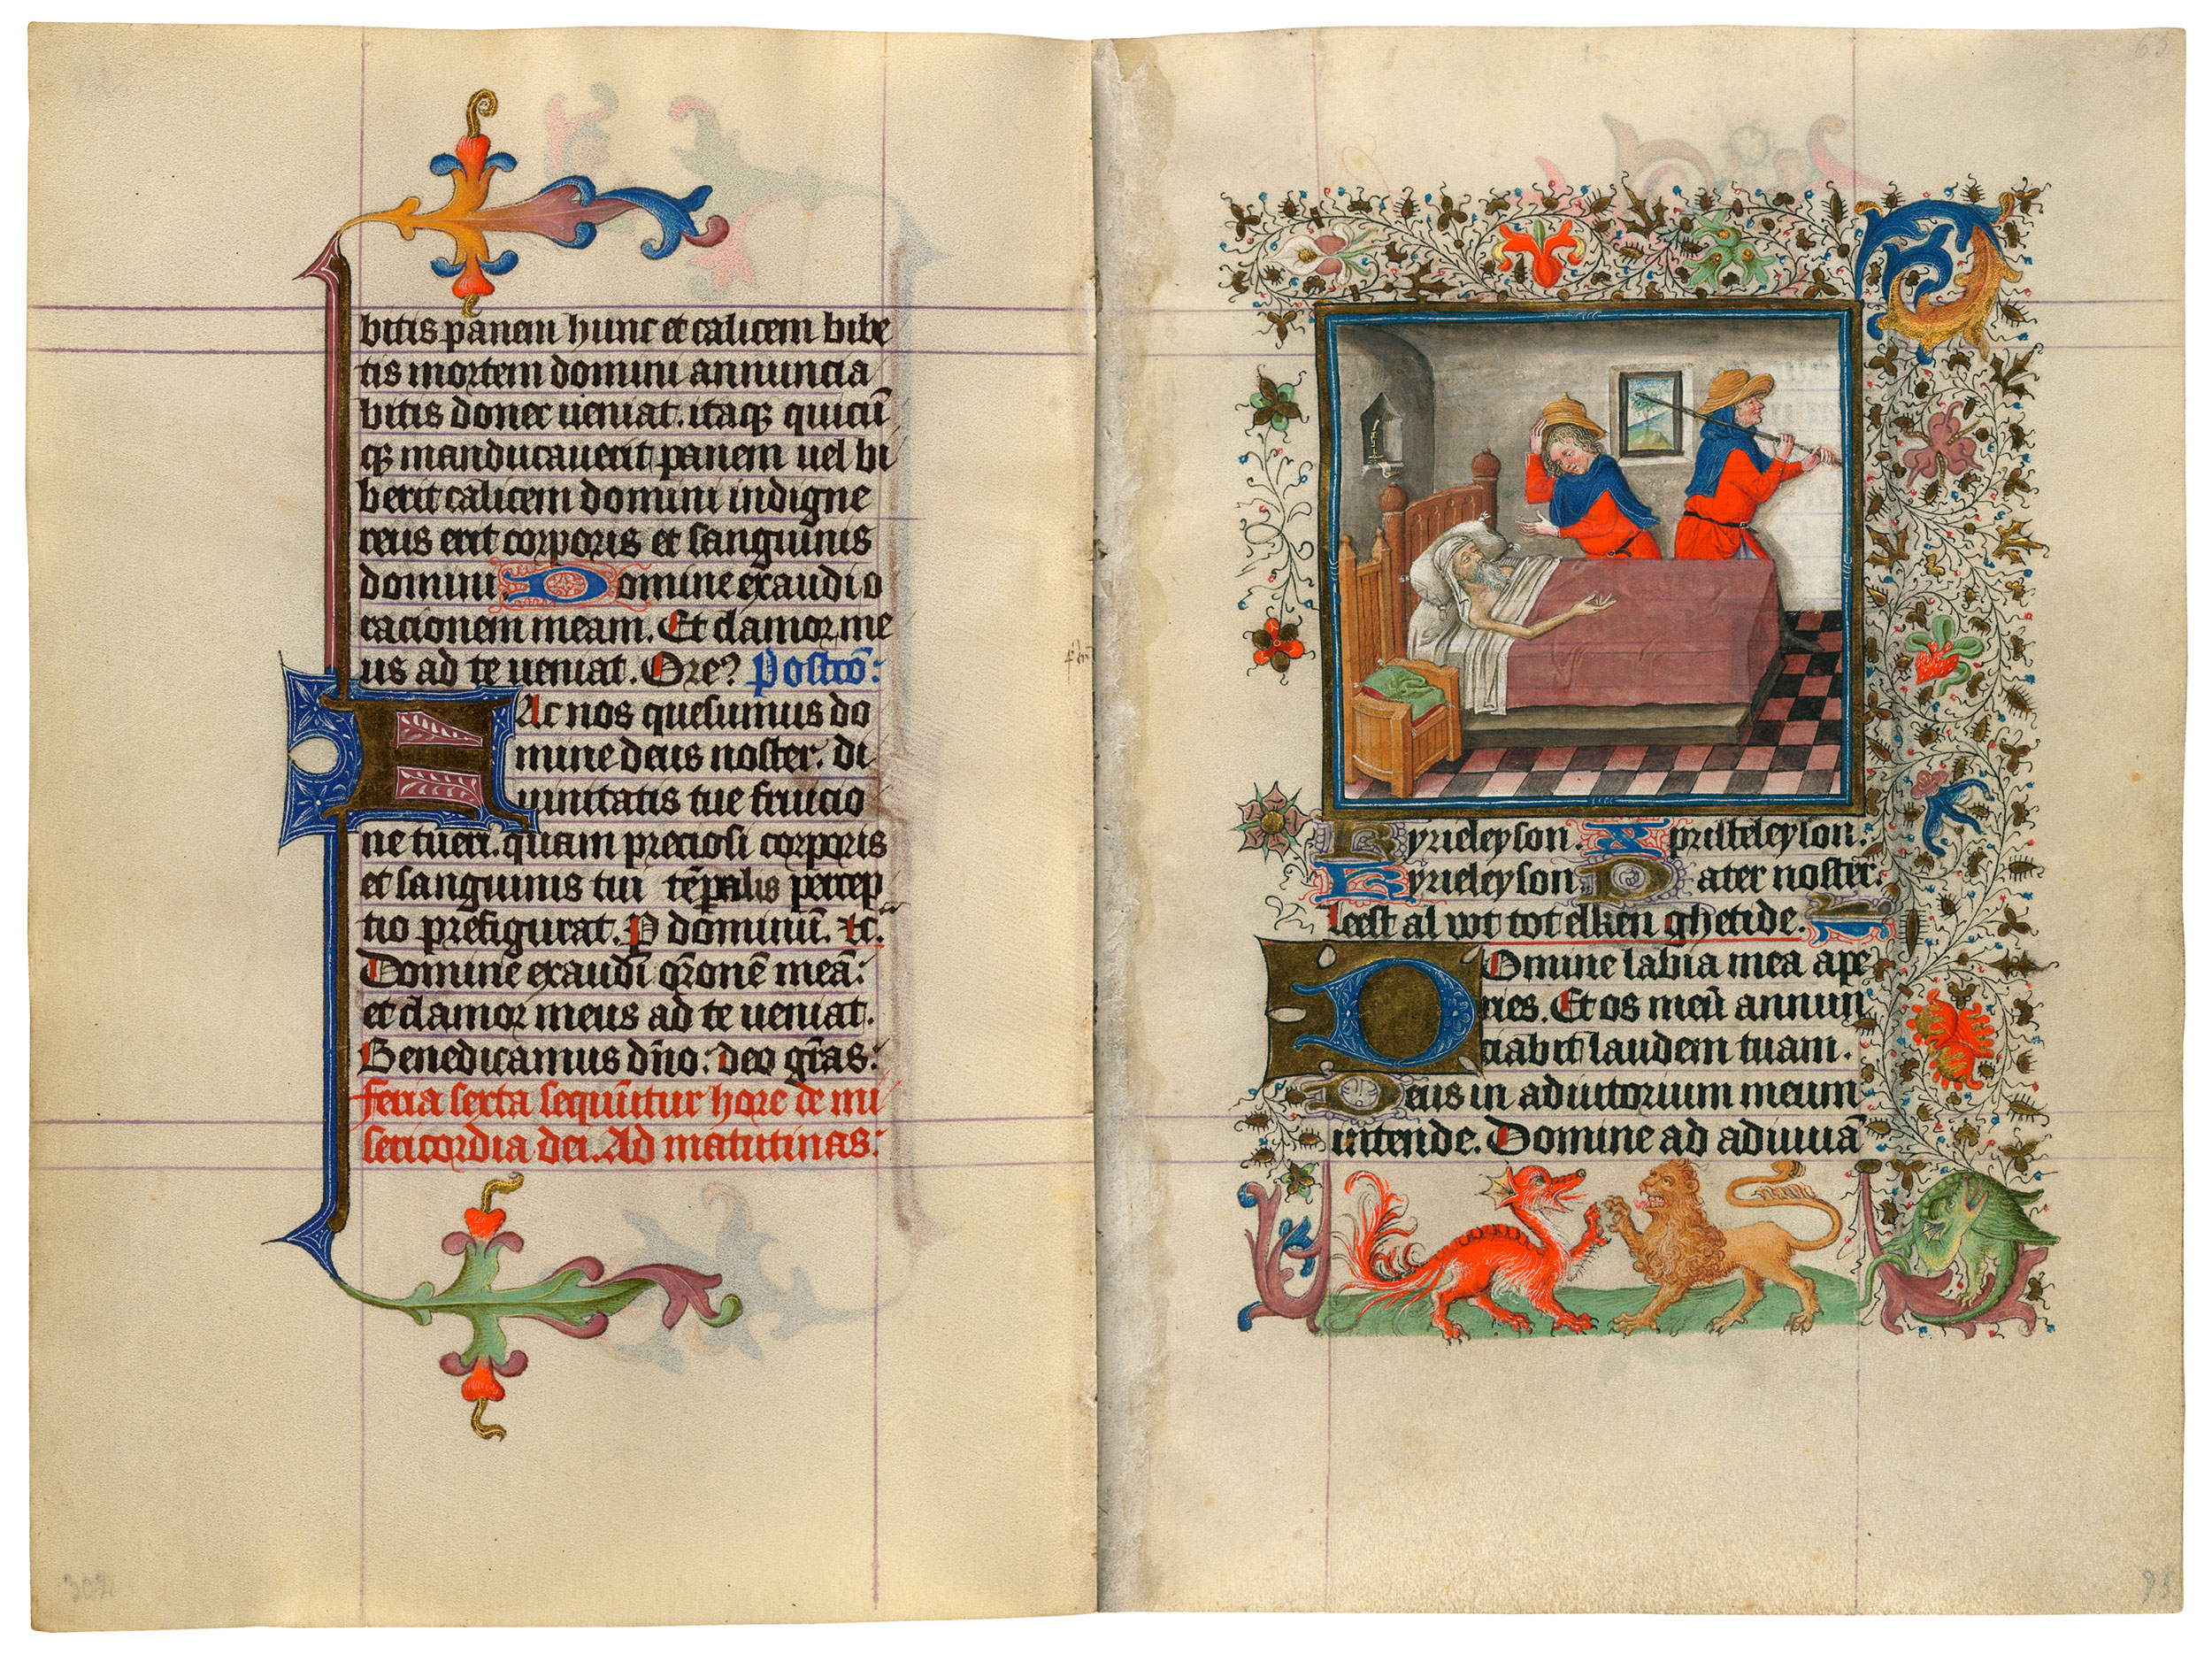 bitis panem hunc et calicem bibe
tis mortem domini annuncia
bitis donec ueniat. itaqꝫ quicū
qꝫ manducauerit panem uel bi
berit calicem domini indigne
reus erit corporis et sanguinis
domini. Domine exaudi o
racionem meam. Et clamor me
us ad te ueniat. Ore? Postcō:
FAc nos quesumus do
mine deus noster. di
uinitatis tue fruicio
ne tueri. quam preciosi corporis
et sanguinis tui tēpalis percep
tio prefigurat. P dominū. ⁊c.
Domine exaudi orōnē meā:
et clamor meus ad te ueniat.
Benedicamus dn̄o: deo gr̄as:
Feria sexta sequūtur hore de mi
sericordia dei. Ad matutinas:
65
Kyrieleyson. Xpristeleyson.
Kyrieleyson. Pater noster.
Leest al wt tot elken ghetide.
DOmine labia mea ape
ries. Et os meū annun
ciabit laudem tuam.
Deus in adiutorium meum
intende. Domine ad adiuuā
302